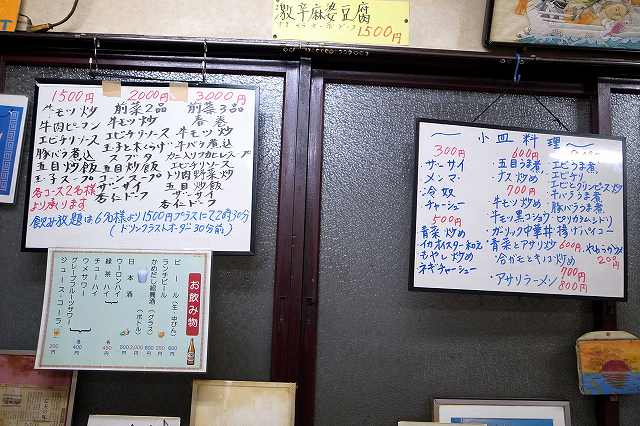 激辛麻婆豆腐
1500円
1500円
牛モツ炒
牛肉ビーフン
エビチリソース
豚バラ煮込
五目炒飯
玉子スープ
各コース2名様
より承ります
2000円
前菜2品
牛モツ炒
エビチリソース
玉子と木くらげ
スブタ
五目炒飯
コーンスープ
ザーサイ
杏仁ドーフ
3000円
前菜3品
春巻
牛モツ炒
牛バラ煮込
カニ入りフカヒレスープ
エビチリソース
トリ肉野菜炒
五目炒飯
ザーサイ
杏仁ドーフ
飲み放題は6名様より1500円プラスにて2時30分
(ドリンクラストオーダー30分前)
小皿料理
300円
ザーサイ
メンマ
冷奴
チャーシュー
500円
青菜炒め
イカオイスター和え
もやし炒め
ネギチャーシュー
600円
・五目うま煮
・ナス炒め
700円
・牛モツ炒め
・ガーリック中華丼
・青菜とアサリ炒
・冷がとキノコ炒め
・アサリラーメン
エビうま煮
エビチリ
牛バラうま煮
豚バラうま煮
ピリカラムシドリ
揚げパイコー
600円
700円
800円
お飲み物
ビール(生・中びん)
ランチビール
かめだし紹興酒(グラス)
(ボトル)
日本酒
ウーロンハイ
緑茶ハイ
チューハイ
ウメサワー
グレープフルーツサワー
ジュース・コーラ
600円
250円
600円
2,000円
500円
各
450円
各
400円
250円